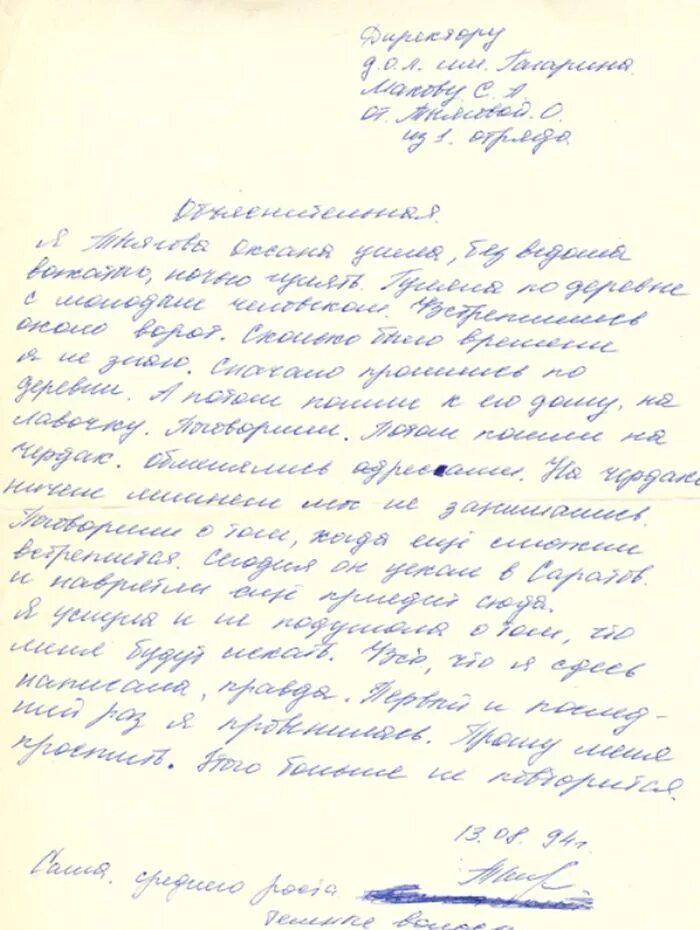 Директору
д.о.л. им. Гагарина
Макову С. А.
от Тнясовой. О.
из 1. отряда.
Объяснительная.
Я Тнясова Оксана ушла, без ведома
вожатых, ночью гулять. Гуляла по деревне
с молодым человеком. Встретились
около ворот. Сколько было времени
я не знаю. Сначало прошлись по
деревни. А потом пошли к его дому, на
лавочку. Поговорили. Потом пошли на
чердак. Обменялись адресами. На чердаке
ничем лишнем мы не занимались.
Поговорили о том, когда ещё сможем
встретится. Сегодня он уехал в Саратов.
и наврятли ещё приедит сюда.
Я уснула и не подумала о том, что
меня будут искать. Всё, что я сдесь
написала, правда. Первый и послед-
ний раз я провинилась. Прошу меня
простить. Этого больше не повторится.
13.08.94г.
Саша, среднего роста
темные волосы